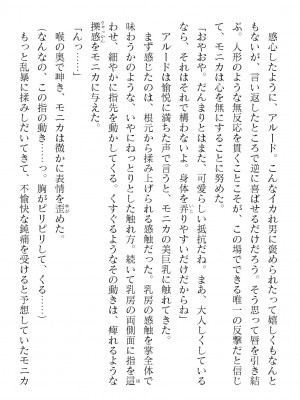 感心したように、アルード。こんなイカれ男に褒められたって嬉しくもなんと
もないが、言い返したところで逆に喜ばせるだけだろう。そう思って唇を引き結
ぶ。人形のような無反応を貫くことこそが、この場でできる唯一の反撃だと信じ
て、モニカは心を無にすることに努めた。
「おやおや。だんまりとはまた、可愛らしい抵抗だね。まあ、大人しくしている
ならば、それはそれで構わないよ。身体を弄りやすいだけだからね」
アルードは愉悦に満ちた声で言うと、モニカの美巨乳に触れてきた。
まず感じたのは、根元から揉み上げられる感触だった。乳房の感触を掌全体で
味わうかのような、いやにねっとりとした触れ方。続いて乳房の両側面に指を這
わせ、細やかに指先を動かしてくる。くすぐるようなその動きは、痺れるような
掻痒感をモニカに与えた。
「んっ……」
喉の奥で呻き、モニカは微かに表情を歪めた。
（なんなの、この指の動き……っ。胸がピリピリして、くる……）
もっと乱暴に揉みしだいてきて、不愉快な鈍痛を受けると予想していたモニカ